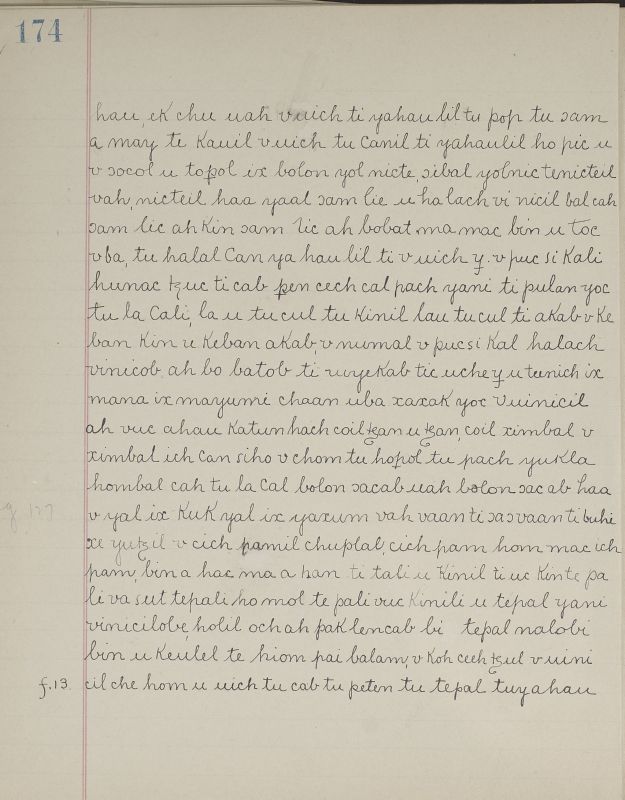 174
hau, ek chu uah v uich ti yahau lil tu pop tu sam
a may te Kauil v uich tu Canil ti yahaulil ho pic u
v socol u topol ix bolon yol nicte, sibal yolnic tenicteil
vah, nicteil haa yaal sam lic u halach vi nicil bal cah
sam lic ah Kin sam lic ah bobat, ma mac bin u toc
v ba, tu halal Can ya hau lil ti v uich y. v puc si Kali
hunac ꜩuc ti cab pen cech cal pach yani ti pulan yoc
tu la Cali, la u tu cul tu Kinil lau tu cul ti aKab v Ke
ban Kin u Keban aKab, v numal v pucsi Kal halach
vinicob ah bo batob ti uyeKab tic uche y u tunich ix
mana ix mayumi chaan uba xaxak yoc v uinicil
ah vuc ahau Katun hach coil ꜩan u ꜩan, coil ximbal v
ximbal ich can siho v chom tu hopol tu pach yuKla
hombal cah tu la Cal bolon sacab uah bolon sac ab haa
g 127
v yal ix KuK yal ix yaxum vah vaan ti sas vaan ti buhi
xe yuꜩil v cich pamil chuplal, cich pam hom mac ich
pam, bin a hac ma a han ti tali u Kinil ti uc Kinte pa
li va sut tepali ho mol te pali vuc Kinili u tepal yani
vinicilobe, holil och ah pak lencab bi tepal nalobi
bin u Keulel te hiom pai balam, v Koh cech ꜩul v uini
f. 13. cil che hom u uich tu cab tu peten tu tepal tuyahau